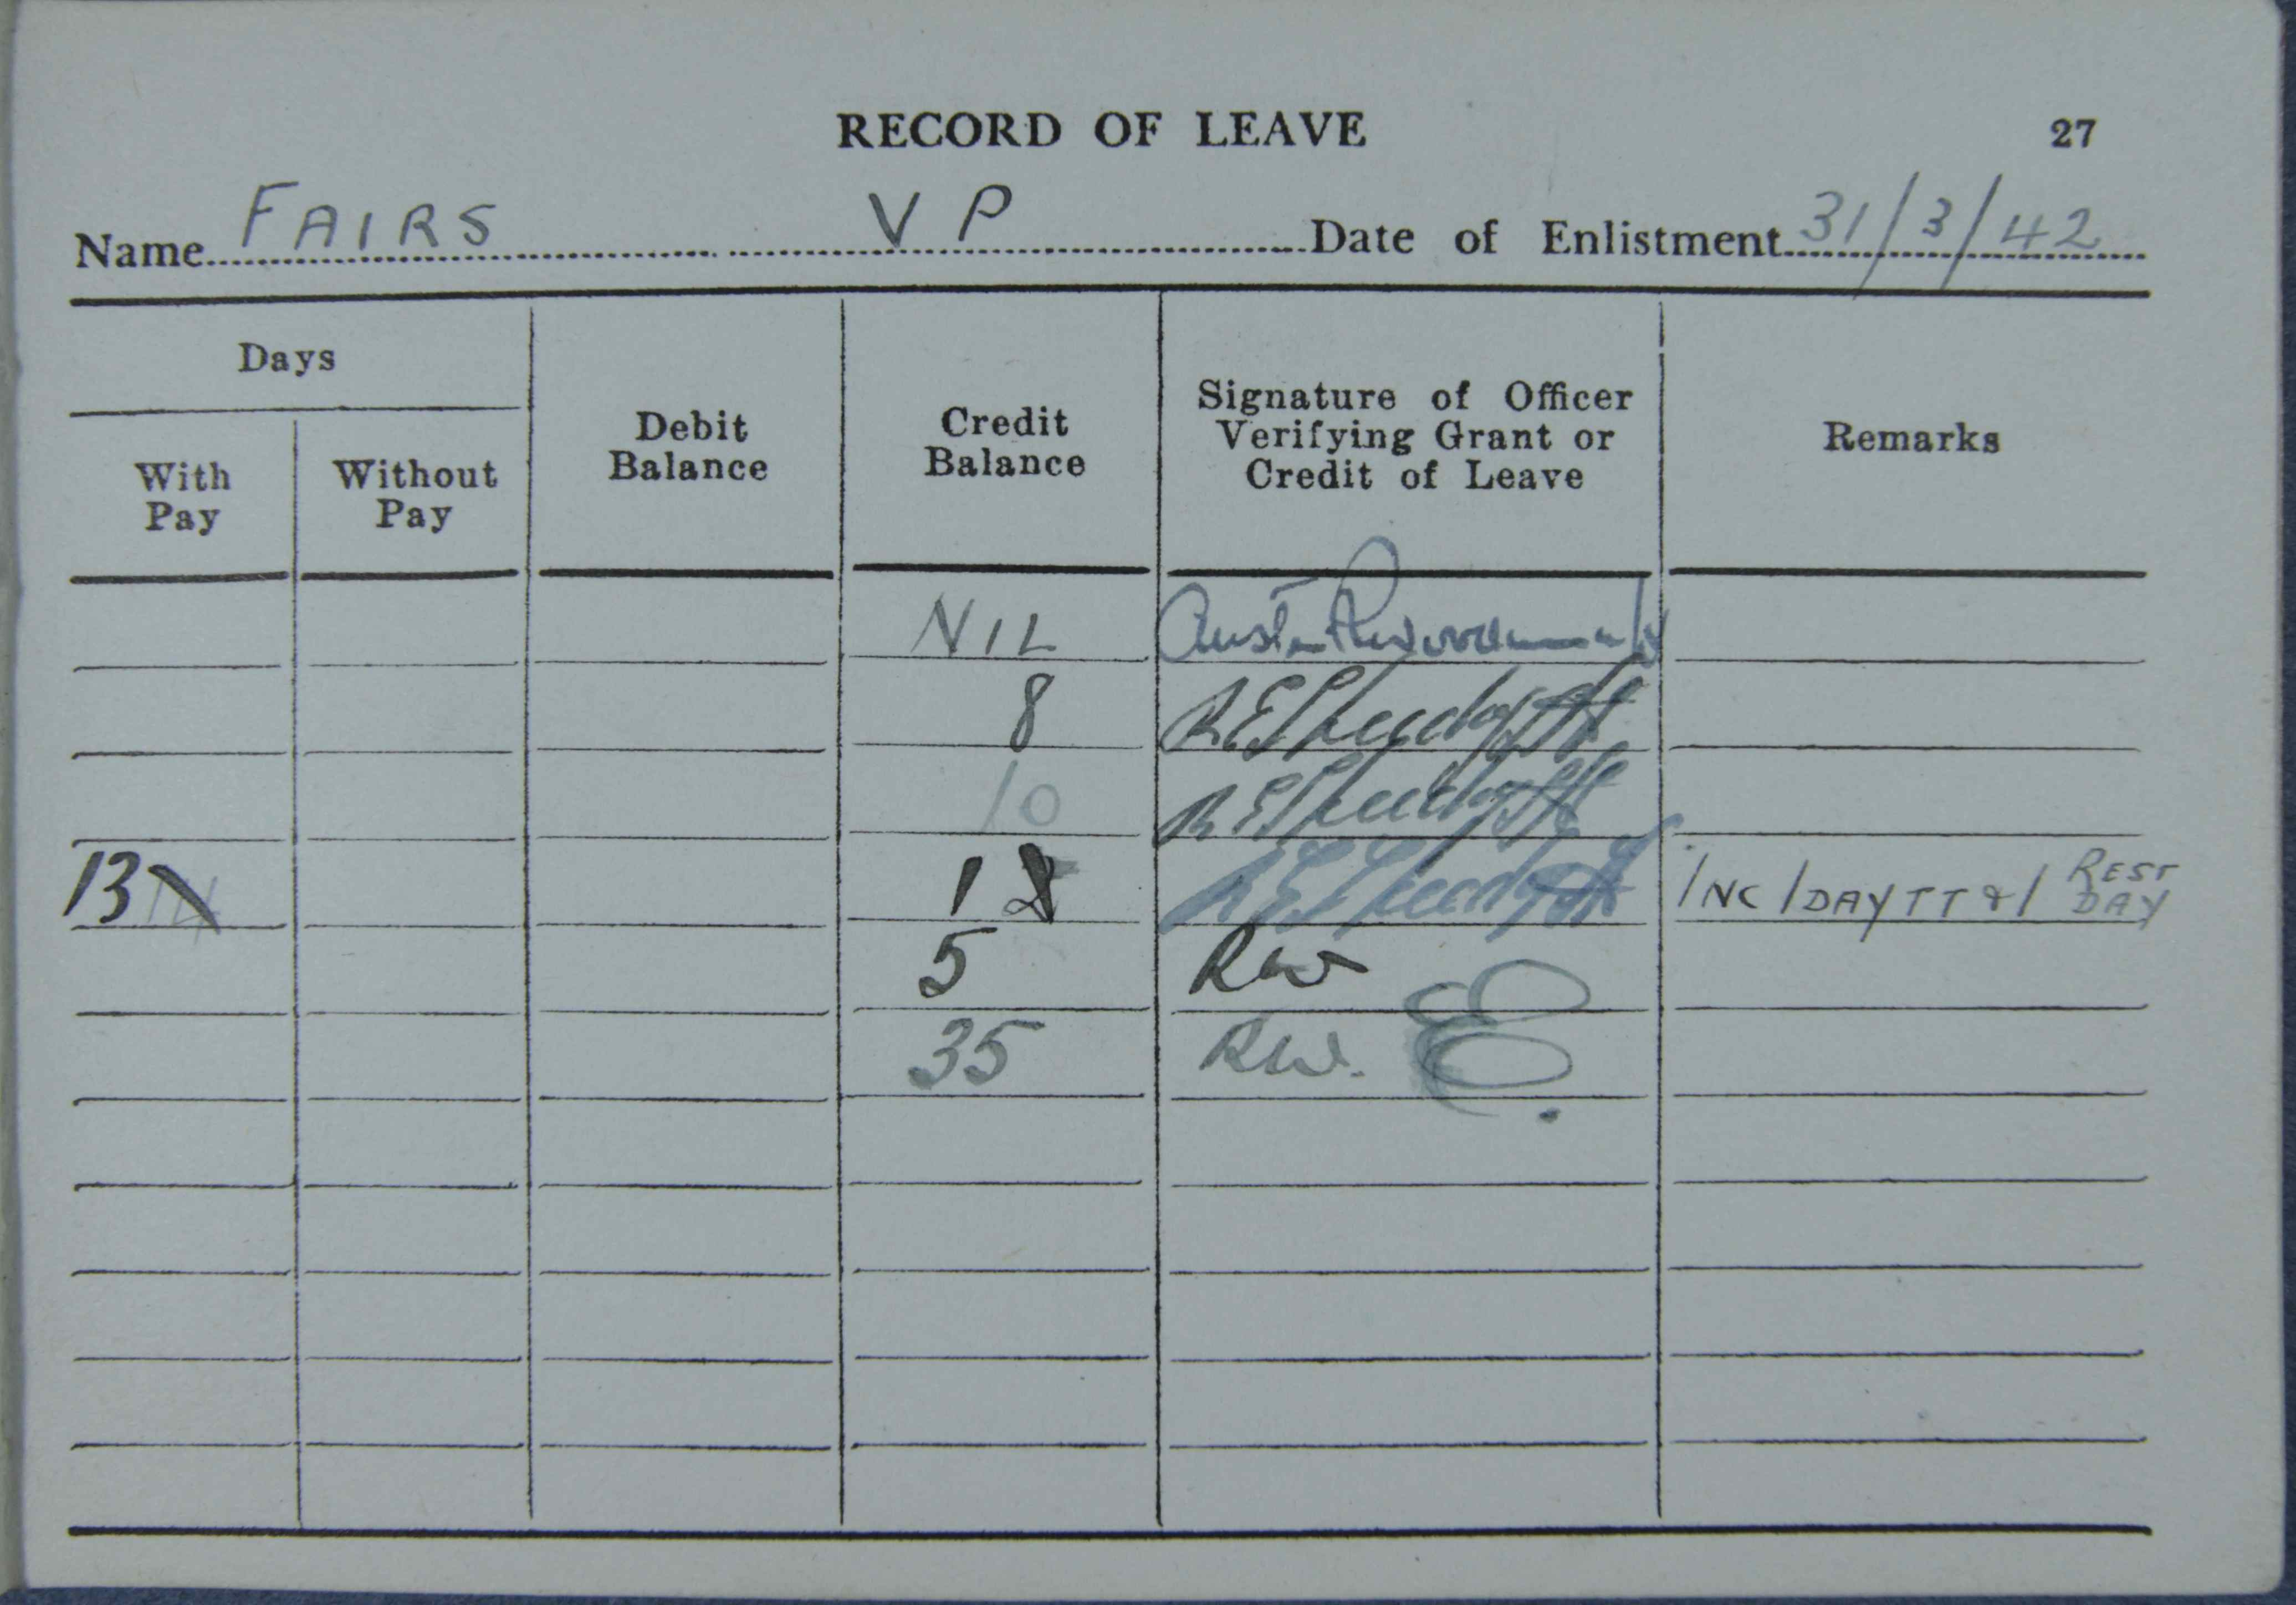 RECORD OF LEAVE 27
Name FAIRS V P Date of Enlistment 31/3/42
Days
With Pay
Without Pay
Debit Balance
Credit Balance
Signature of Officer
Verifying Grant or
Credit of Leave
Remarks
NIL
8
10
13 14 1 INC 1 DAY TT & 1 REST DAY
5 RW
35 RW.